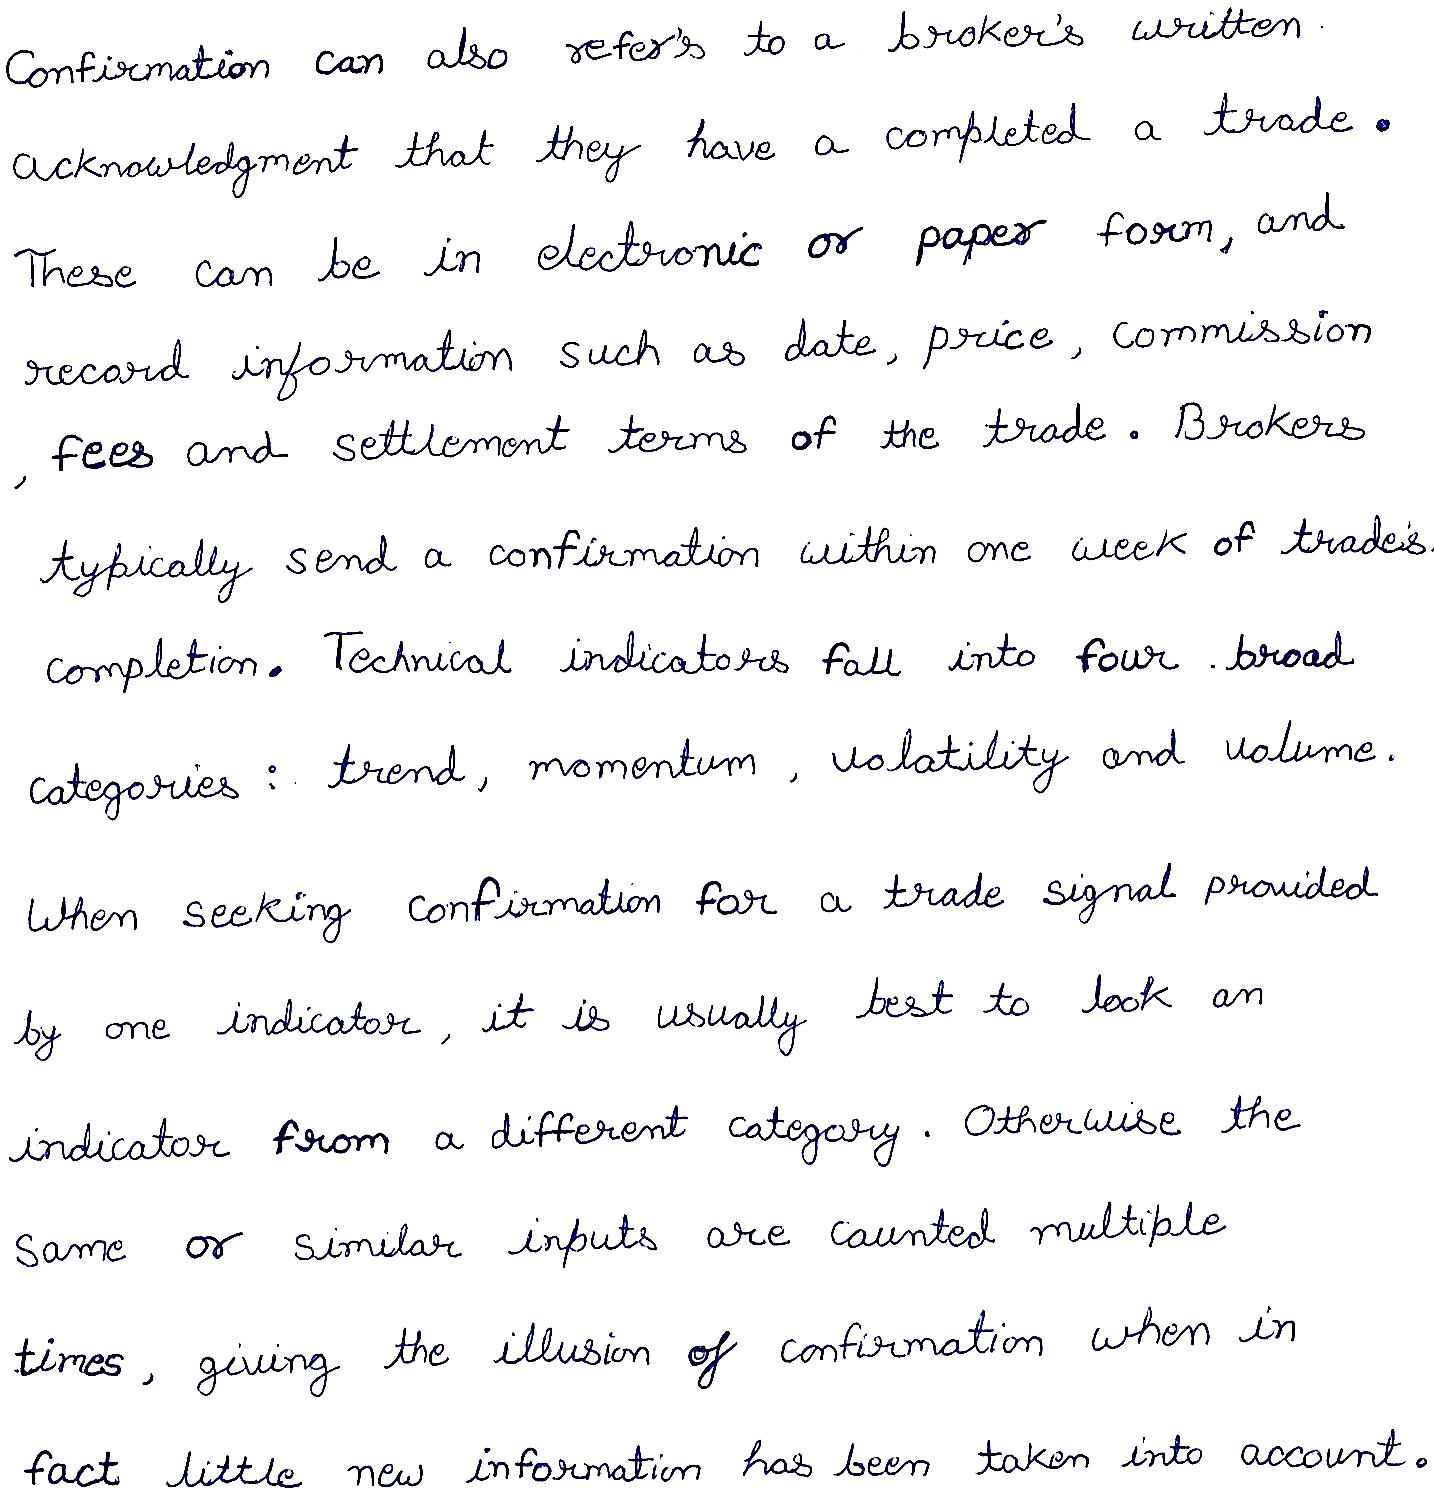 Confirmation can also refer's to a broker's written
acknowledgment that they have a completed a trade.
These can be in electronic or paper form, and
record information such as date, price, commission
, fees and settlement terms of the trade. Brokers
typically send a confirmation within one week of trade's.
completion. Technical indicators fall into four broad
categories: trend, momentum, volatility and volume.
When seeking confirmation for a trade signal provided
by one indicator, it is usually best to look an
indicator from a different category. Otherwise the
same or similar inputs are counted multiple
times, giving the illusion of confirmation when in
fact little new information has been taken into account.